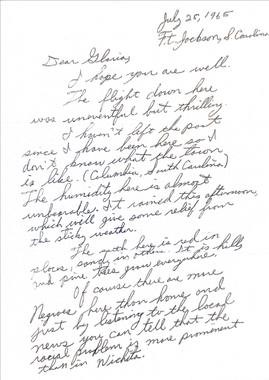 July 25, 1965
Ft. Jackson, S. Carolina
Dear Gloria,
I hope you are well.
The flight down here
was uneventful but thrilling.
I havn't left the post
since I have been here so I
don't know what the town
is like. (Columbia, South Carolina)
The humidity here is almost
unbearable. It rained this afternoon,
which will give some relief from
the sticky weather.
The earth here is red in
places, sandy in others. It is hilly
and pine trees grow everywhere.
Of course there are more
Negroes here than home and
just by listening to the local
news you can tell that the
racial problem is more prominent
than in Wichita.